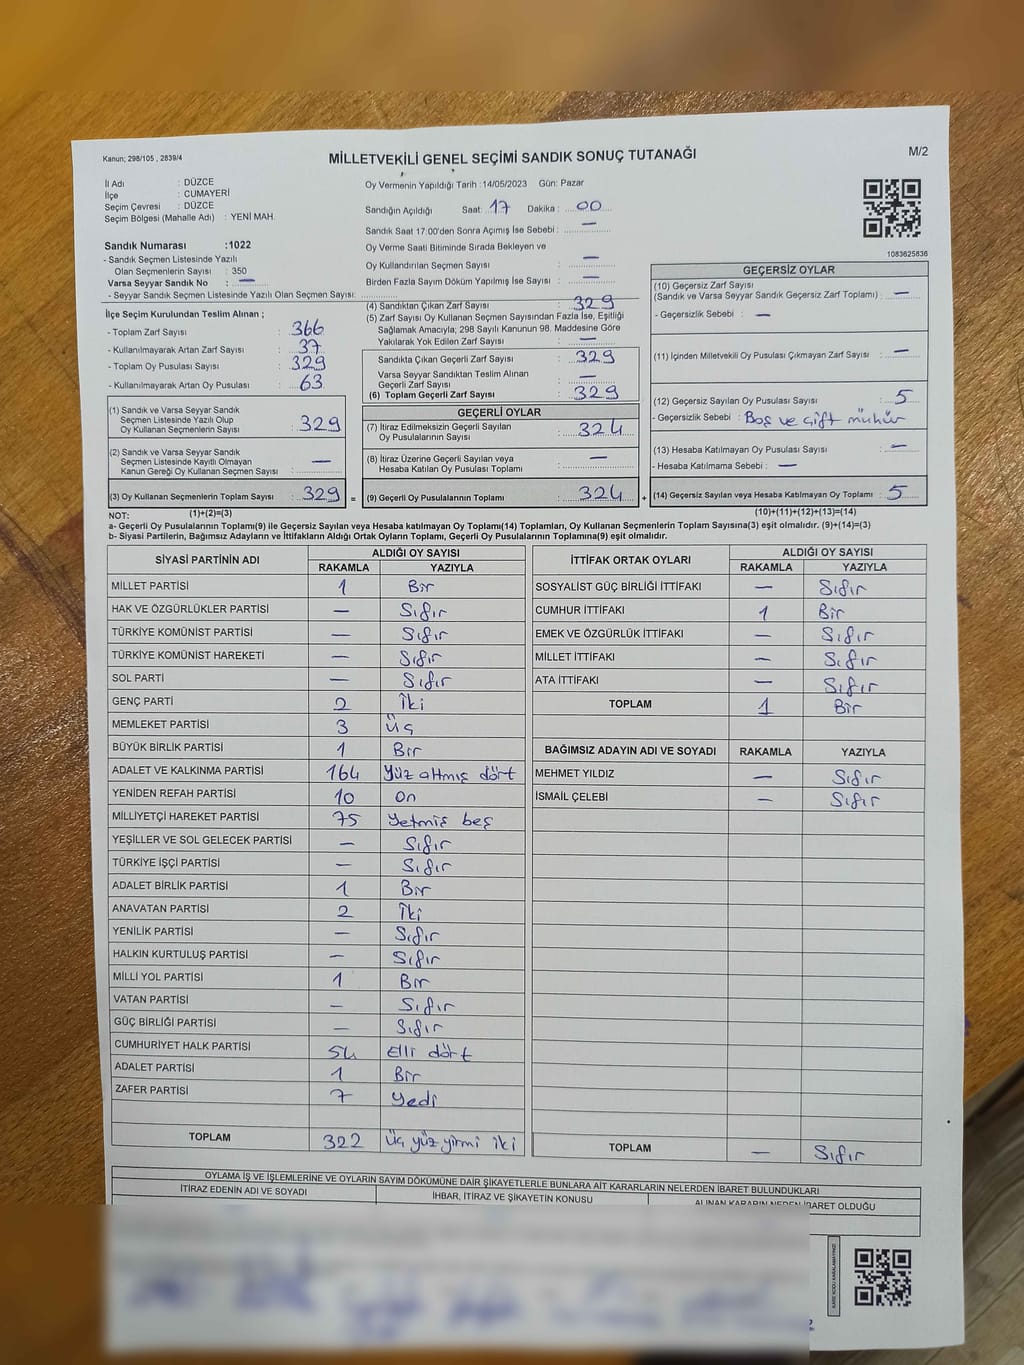 Kanun; 298/105 , 2839/4
MİLLETVEKİLİ GENEL SEÇİMİ SANDIK SONUÇ TUTANAĞI
M/2
İl Adı : DÜZCE
İlçe : CUMAYERİ
Seçim Çevresi : DÜZCE
Seçim Bölgesi (Mahalle Adı) : YENİ MAH.
Sandık Numarası :1022
- Sandık Seçmen Listesinde Yazılı
Olan Seçmenlerin Sayısı : 350
Varsa Seyyar Sandık No : —
- Seyyar Sandık Seçmen Listesinde Yazılı Olan Seçmen Sayısı:
Oy Vermenin Yapıldığı Tarih :14/05/2023 Gün: Pazar
Sandığın Açıldığı Saat: 17 Dakika : 00
Sandık Saat 17:00'den Sonra Açımış İse Sebebi : —
Oy Verme Saati Bitiminde Sırada Bekleyen ve
Oy Kullandırılan Seçmen Sayısı : —
Birden Fazla Sayım Döküm Yapılmış İse Sayısı : —
1083625836
İlçe Seçim Kurulundan Teslim Alınan ;
- Toplam Zarf Sayısı : 366
- Kullanılmayarak Artan Zarf Sayısı : 37
- Toplam Oy Pusulası Sayısı : 329
- Kullanılmayarak Artan Oy Pusulası : 63
(1) Sandık ve Varsa Seyyar Sandık
Seçmen Listesinde Yazılı Olup
Oy Kullanan Seçmenlerin Sayısı : 329
(2) Sandık ve Varsa Seyyar Sandık
Seçmen Listesinde Kayıtlı Olmayan
Kanun Gereği Oy Kullanan Seçmen Sayısı : —
(3) Oy Kullanan Seçmenlerin Toplam Sayısı : 329 =
(1)+(2)=(3)
(4) Sandıktan Çıkan Zarf Sayısı : 329
(5) Zarf Sayısı Oy Kullanan Seçmen Sayısından Fazla İse, Eşitliği
Sağlamak Amacıyla; 298 Sayılı Kanunun 98. Maddesine Göre
Yakılarak Yok Edilen Zarf Sayısı : —
Sandıkta Çıkan Geçerli Zarf Sayısı : 329
Varsa Seyyar Sandıktan Teslim Alınan
Geçerli Zarf Sayısı : —
(6) Toplam Geçerli Zarf Sayısı : 329
GEÇERLİ OYLAR
(7) İtiraz Edilmeksizin Geçerli Sayılan
Oy Pusulalarının Sayısı : 324
(8) İtiraz Üzerine Geçerli Sayılan veya
Hesaba Katılan Oy Pusulası Toplamı : —
(9) Geçerli Oy Pusulalarının Toplamı : 324 +
GEÇERSİZ OYLAR
(10) Geçersiz Zarf Sayısı
(Sandık ve Varsa Seyyar Sandık Geçersiz Zarf Toplamı) : —
- Geçersizlik Sebebi : —
(11) İçinden Milletvekili Oy Pusulası Çıkmayan Zarf Sayısı : —
(12) Geçersiz Sayılan Oy Pusulası Sayısı : 5
- Geçersizlik Sebebi : Boş ve çift mühür
(13) Hesaba Katılmayan Oy Pusulası Sayısı : —
- Hesaba Katılmama Sebebi : —
(14) Geçersiz Sayılan veya Hesaba Katılmayan Oy Toplamı : 5
(10)+(11)+(12)+(13)=(14)
NOT:
a- Geçerli Oy Pusulalarının Toplamı(9) ile Geçersiz Sayılan veya Hesaba katılmayan Oy Toplamı(14) Toplamları, Oy Kullanan Seçmenlerin Toplam Sayısına(3) eşit olmalıdır. (9)+(14)=(3)
b- Siyasi Partilerin, Bağımsız Adayların ve İttifakların Aldığı Ortak Oyların Toplamı, Geçerli Oy Pusulalarının Toplamına(9) eşit olmalıdır.
SİYASİ PARTİNİN ADI ALDIĞI OY SAYISI
RAKAMLA YAZIYLA
MİLLET PARTİSİ 1 Bir
HAK VE ÖZGÜRLÜKLER PARTİSİ — Sıfır
TÜRKİYE KOMÜNİST PARTİSİ — Sıfır
TÜRKİYE KOMÜNİST HAREKETİ — Sıfır
SOL PARTİ — Sıfır
GENÇ PARTİ 2 İki
MEMLEKET PARTİSİ 3 Üç
BÜYÜK BİRLİK PARTİSİ 1 Bir
ADALET VE KALKINMA PARTİSİ 164 Yüz altmış dört
YENİDEN REFAH PARTİSİ 10 On
MİLLİYETÇİ HAREKET PARTİSİ 75 Yetmiş beş
YEŞİLLER VE SOL GELECEK PARTİSİ — Sıfır
TÜRKİYE İŞÇİ PARTİSİ — Sıfır
ADALET BİRLİK PARTİSİ 1 Bir
ANAVATAN PARTİSİ 2 İki
YENİLİK PARTİSİ — Sıfır
HALKIN KURTULUŞ PARTİSİ — Sıfır
MİLLİ YOL PARTİSİ 1 Bir
VATAN PARTİSİ — Sıfır
GÜÇ BİRLİĞİ PARTİSİ — Sıfır
CUMHURİYET HALK PARTİSİ 54 Elli dört
ADALET PARTİSİ 1 Bir
ZAFER PARTİSİ 7 Yedi
TOPLAM 322 Üç yüz yirmi iki
İTTİFAK ORTAK OYLARI ALDIĞI OY SAYISI
RAKAMLA YAZIYLA
SOSYALİST GÜÇ BİRLİĞİ İTTİFAKI — Sıfır
CUMHUR İTTİFAKI 1 Bir
EMEK VE ÖZGÜRLÜK İTTİFAKI — Sıfır
MİLLET İTTİFAKI — Sıfır
ATA İTTİFAKI — Sıfır
TOPLAM 1 Bir
BAĞIMSIZ ADAYIN ADI VE SOYADI RAKAMLA YAZIYLA
MEHMET YILDIZ — Sıfır
İSMAİL ÇELEBİ — Sıfır
TOPLAM — Sıfır
OYLAMA İŞ VE İŞLEMLERİNE VE OYLARIN SAYIM DÖKÜMÜNE DAİR ŞİKAYETLERLE BUNLARA AİT KARARLARIN NELERDEN İBARET BULUNDUKLARI
İTİRAZ EDENİN ADI VE SOYADI İHBAR, İTİRAZ VE ŞİKAYETİN KONUSU ALINAN KARARIN NEDEN İBARET OLDUĞU